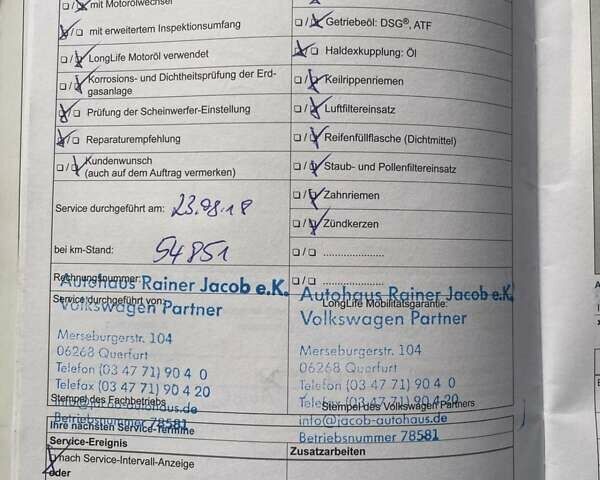 mit Motorölwechsel
mit erweitertem Inspektionsumfang
LongLife Motoröl verwendet
Korrosions- und Dichtheitsprüfung der Erd-
gasanlage
Prüfung der Scheinwerfer-Einstellung
Reparaturempfehlung
Kundenwunsch
(auch auf dem Auftrag vermerken)
Service durchgeführt am: 23.08.18
bei km-Stand: 54851
Rechnungsnummer:
Service durchgeführt von:
Autohaus Rainer Jacob e.K.
Volkswagen Partner
Merseburgerstr. 104
06268 Querfurt
Telefon (03 47 71) 90 4 0
Telefax (03 47 71) 90 4 20
Stempel des Fachbetriebs
info@jacob-autohaus.de
Betriebsnummer 78581
Getriebeöl: DSG®, ATF
Haldexkupplung: Öl
Keilrippenriemen
Luftfiltereinsatz
Reifenfüllflasche (Dichtmittel)
Staub- und Pollenfiltereinsatz
Zahnriemen
Zündkerzen
.....................
.....................
Autohaus Rainer Jacob e.K.
LongLife Mobilitätsgarantie:
Volkswagen Partner
Merseburgerstr. 104
06268 Querfurt
Telefon (03 47 71) 90 4 0
Telefax (03 47 71) 90 4 20
Stempel des Volkswagen Partners
info@jacob-autohaus.de
Betriebsnummer 78581
Ihre nächsten Service-Termine
Service-Ereignis
Zusatzarbeiten
nach Service-Intervall-Anzeige
oder